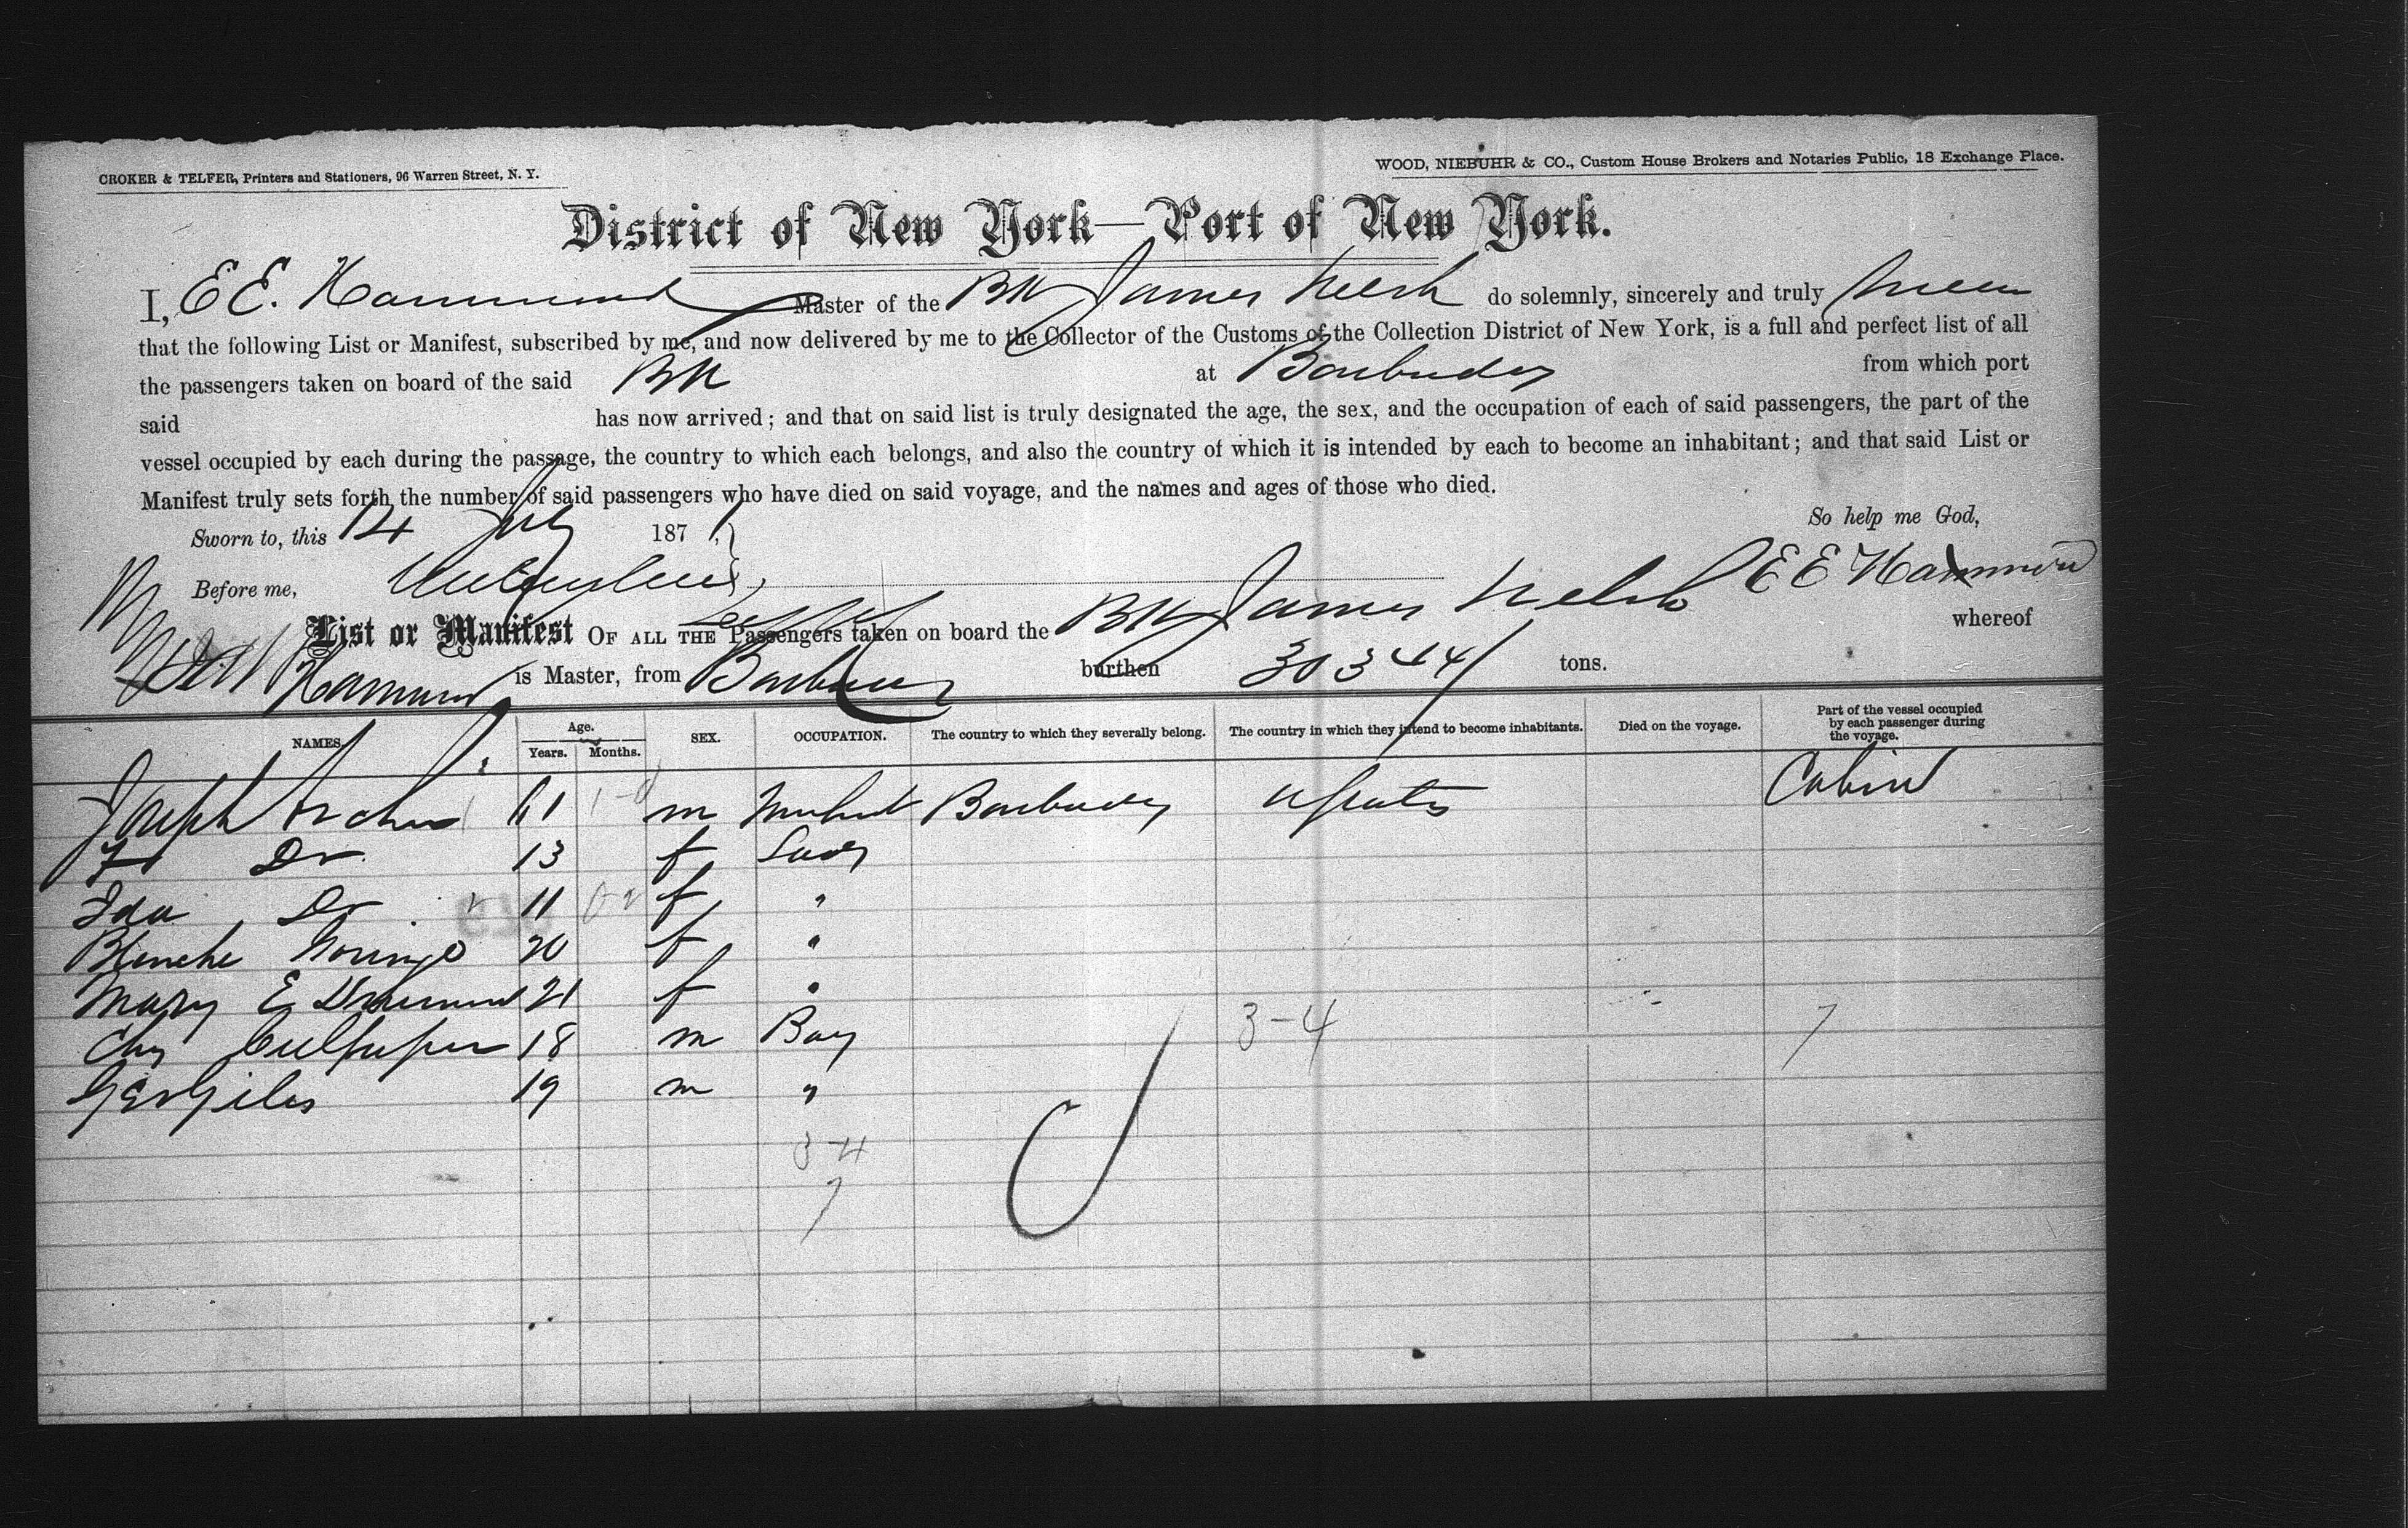 CROKER & TELFER, Printers and Stationers, 96 Warren Street, N. Y.
WOOD, NIEBUHR & CO., Custom House Brokers and Notaries Public, 18 Exchange Place.
District of New York—Port of New York.
I, E E. Hammond Master of the BK James do solemnly, sincerely and truly
that the following List or Manifest, subscribed by me, and now delivered by me to the Collector of the Customs of the Collection District of New York, is a full and perfect list of all
the passengers taken on board of the said BK at Barbados from which port
said has now arrived; and that on said list is truly designated the age, the sex, and the occupation of each of said passengers, the part of the
vessel occupied by each during the passage, the country to which each belongs, and also the country of which it is intended by each to become an inhabitant; and that said List or
Manifest truly sets forth the number of said passengers who have died on said voyage, and the names and ages of those who died.
So help me God,
Sworn to, this 14 July 187
Before me, E E Hammond
List or Manifest OF ALL THE Passengers taken on board the BK James whereof
Hammond is Master, from Barbados burthen 303 44/ tons.
NAMES. Age. Years. Months. SEX. OCCUPATION. The country to which they severally belong. The country in which they intend to become inhabitants. Died on the voyage. Part of the vessel occupied by each passenger during the voyage.
Joseph 61 m Barbados U States Cabin
Do 13 f Lady
Ida Do 11 f "
Blanche 20 f "
Mary E 21 f "
Chs Culpeper 18 m Boy
3-4 7
G E Giles 19 m "
3-4
7